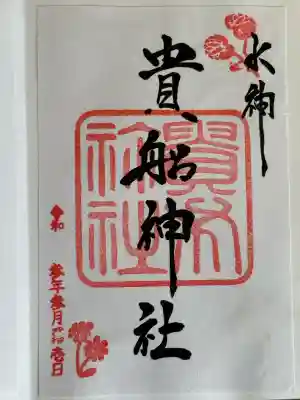 水神
貴船神社
貴船
神社
令和
参年参月
壱日